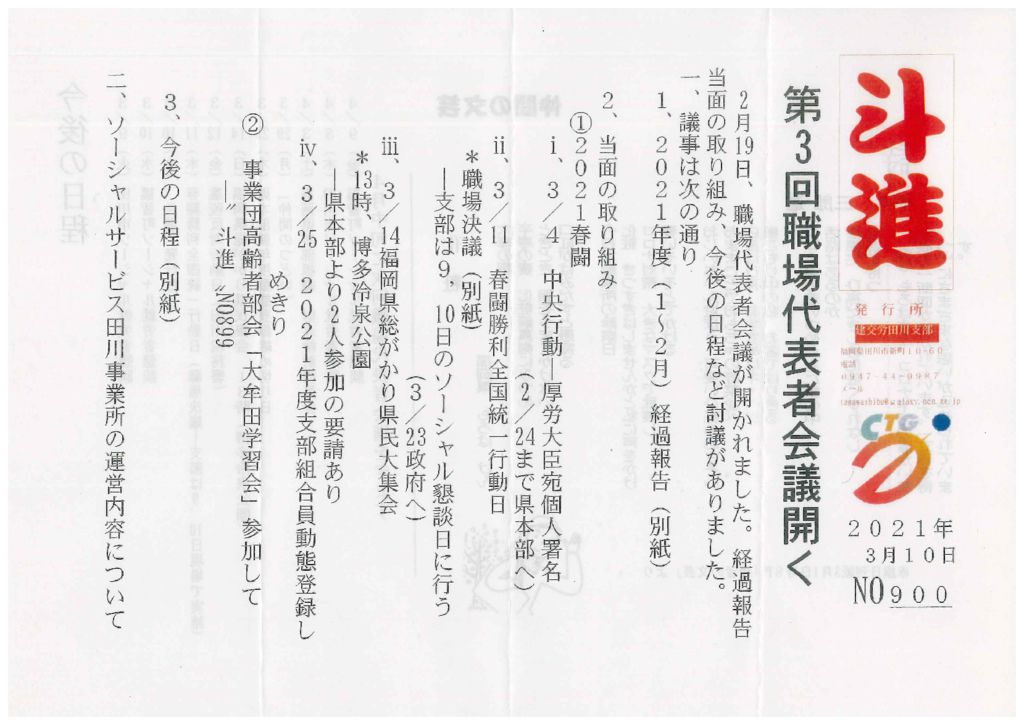 斗進
発行所
建交労田川支部
福岡県田川市新町10-60
電話
0947-44-0987
メール
CTG
2021年
3月10日
NO900
第3回職場代表者会議開く
2月19日、職場代表者会議が開かれました。経過報告
当面の取り組み、今後の日程など討議がありました。
一、議事は次の通り
1、2021年度(1〜2月)経過報告(別紙)
2、当面の取り組み
①2021春闘
ⅰ、3/4 中央行動―厚労大臣宛個人署名
(2/24まで県本部へ)
ⅱ、3/11 春闘勝利全国統一行動日
*職場決議(別紙)
―支部は9,10日のソーシャル懇談日に行う
(3/23政府へ)
ⅲ、3/14福岡県総がかり県民大集会
*13時、博多冷泉公園
―県本部より2人参加の要請あり
ⅳ、3/25 2021年度支部組合員動態登録し
めきり
② 事業団高齢者部会「大牟田学習会」参加して
―〝斗進〟NO899
3、今後の日程(別紙)
二、ソーシャルサービス田川事業所の運営内容について